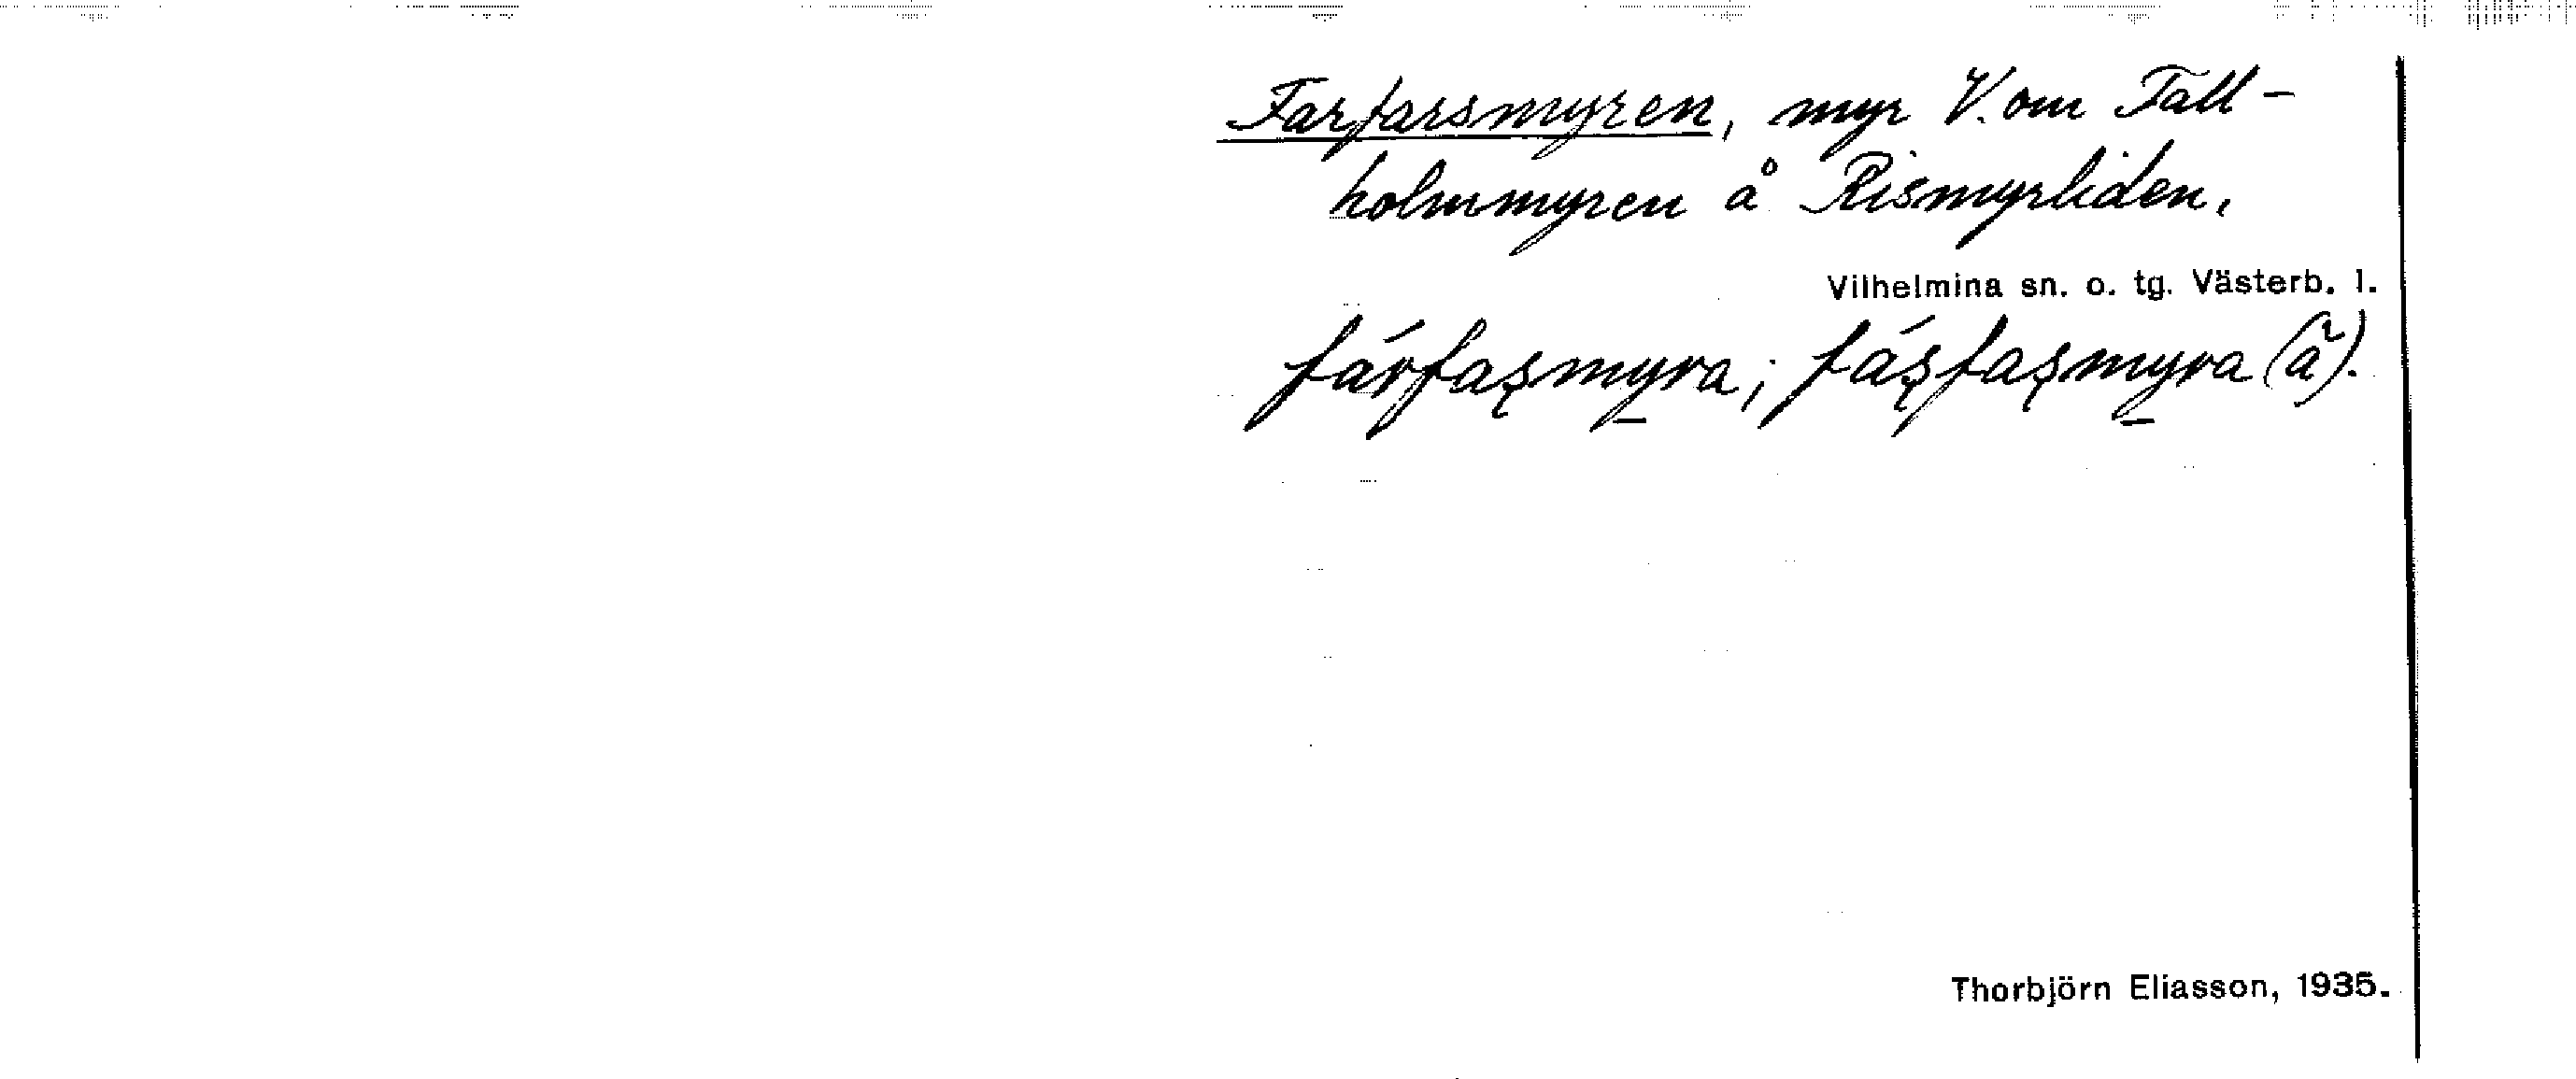 Farfarsmyren, myr V. om Tall-
holmmyren å Rismyrliden,
Vilhelmina sn. o. tg. Västerb. l.
fárfaşmy̱ra; fáşfaşmy̱ra (ã).
Thorbjörn Eliasson, 1935.